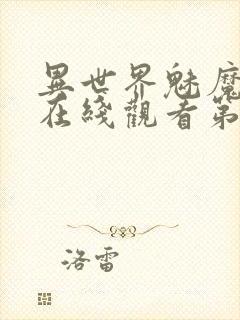 異世界魅魔
在綫觀看第
洛雷